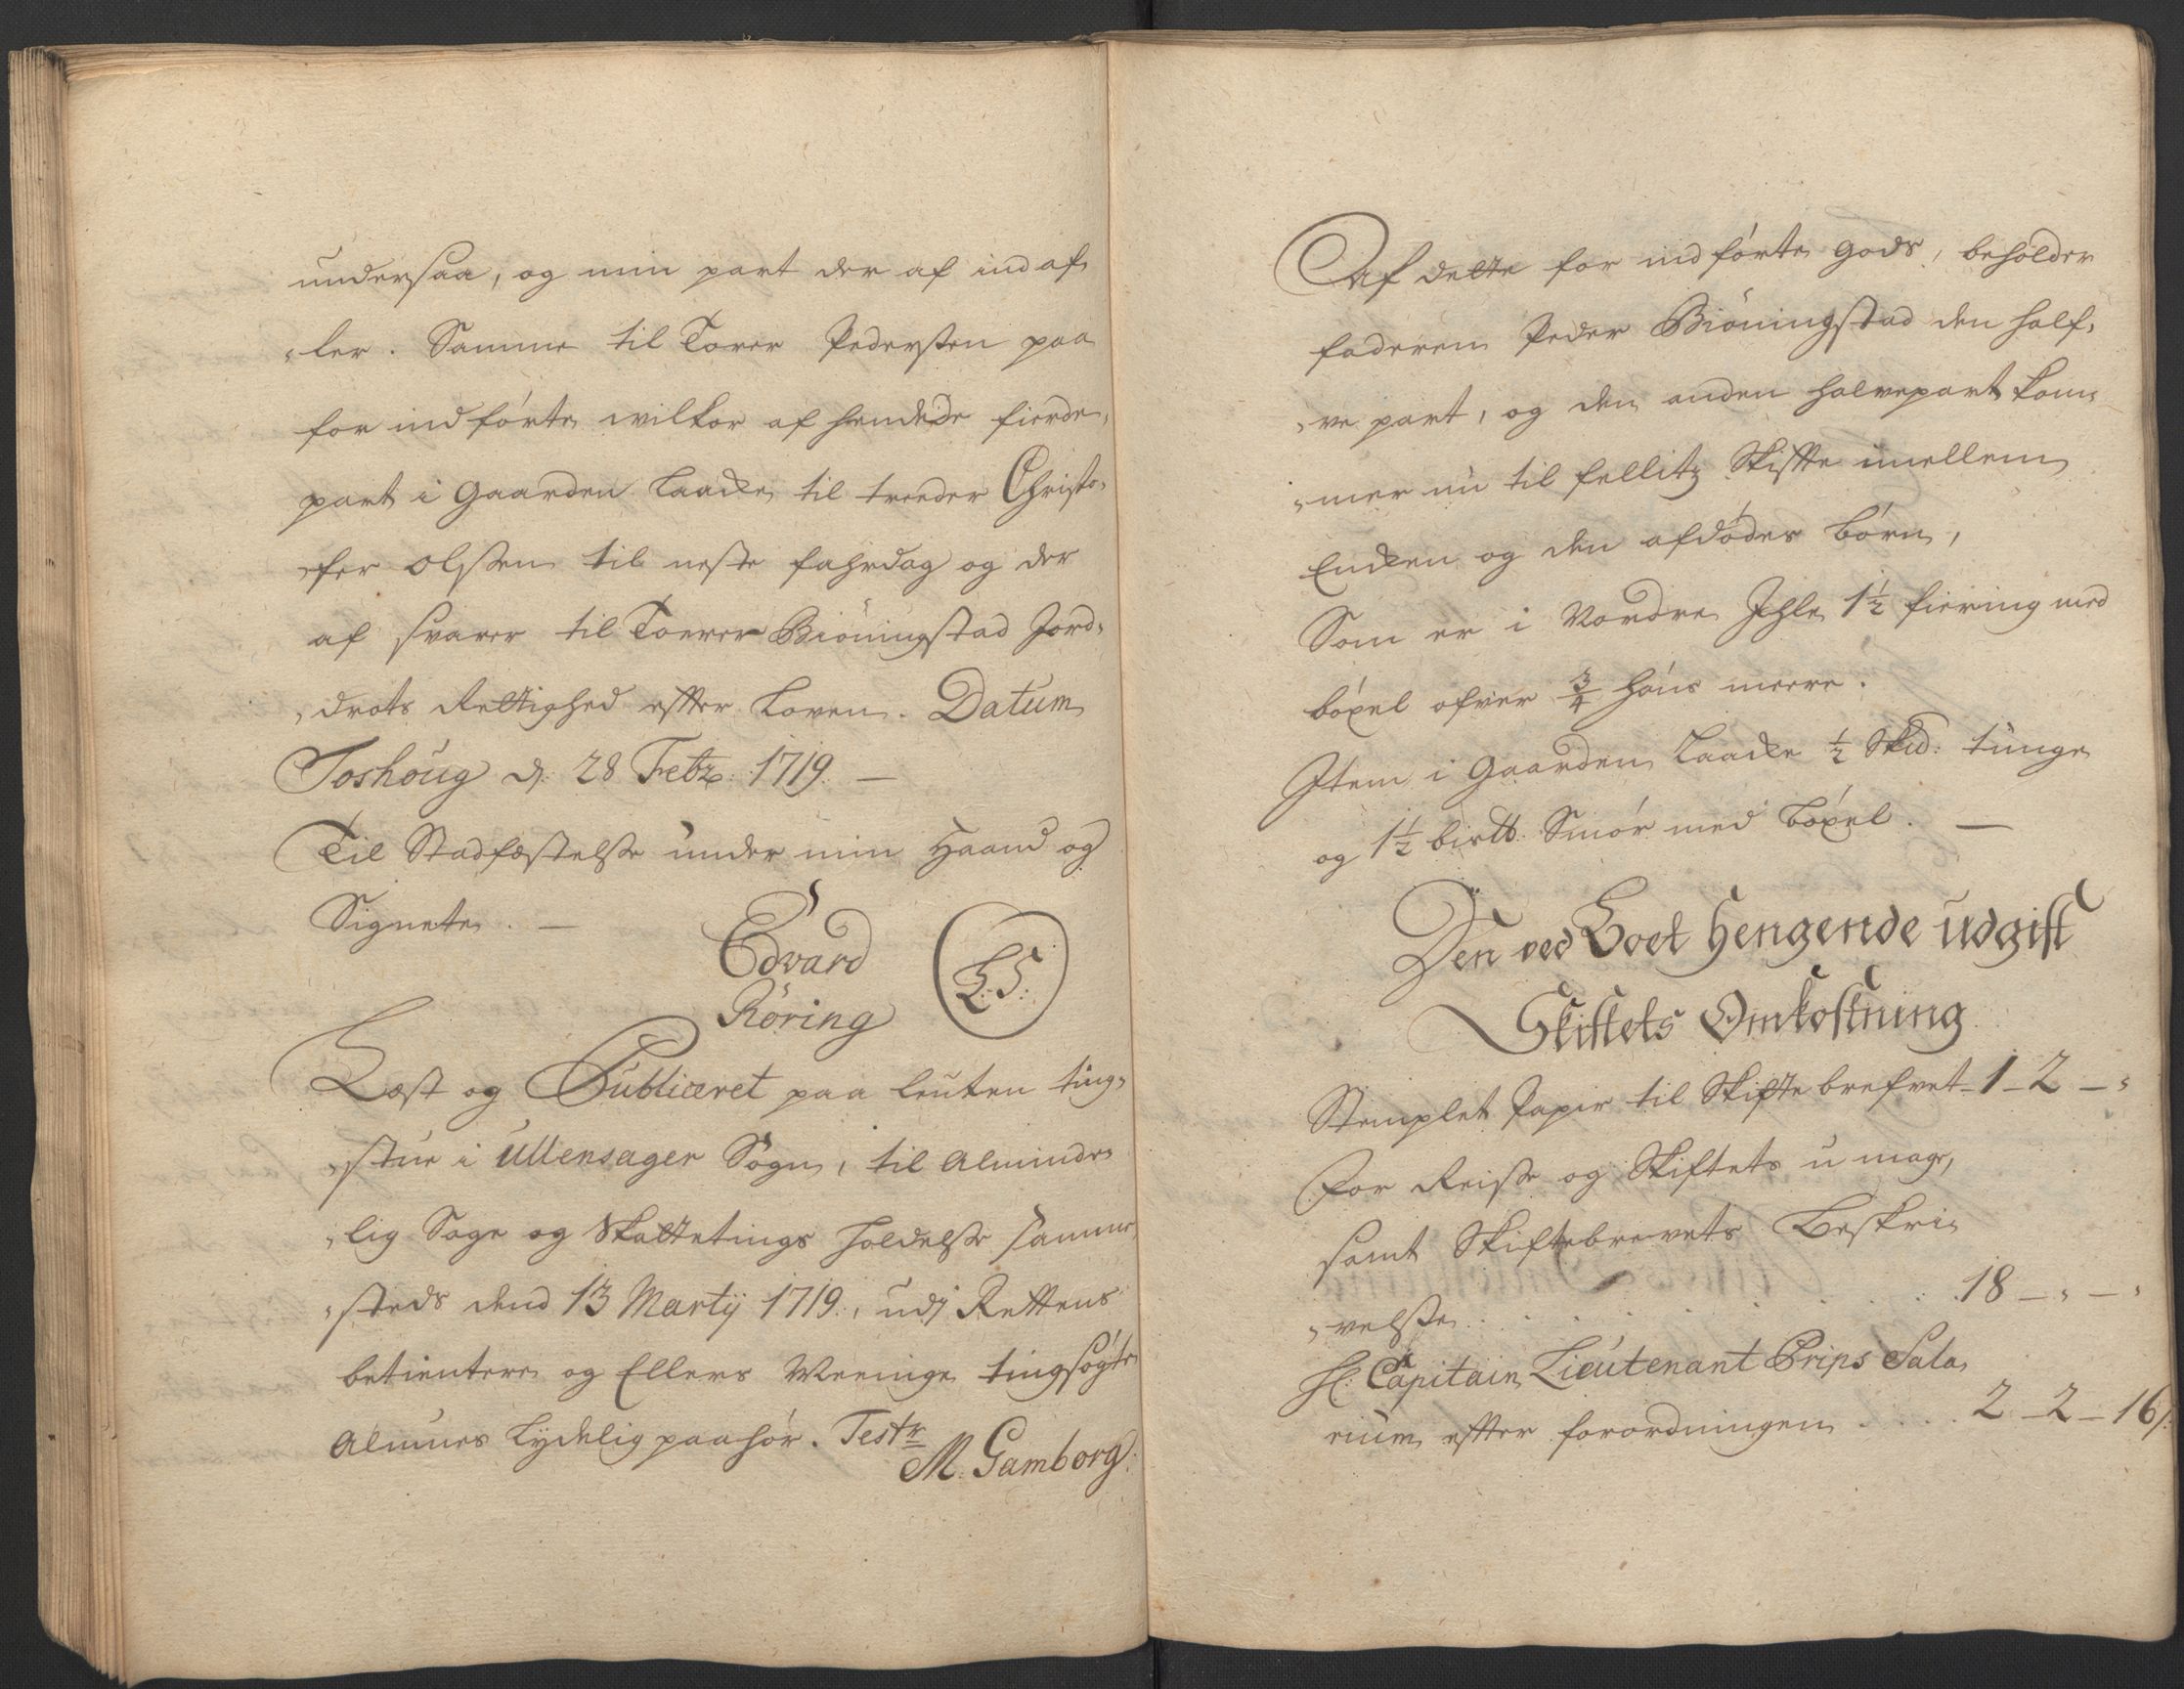 undersaa, og min part der af ind af,
"ler. Samme til Torer Pedersten paa
for ind førte wilkor af hendede fierde,
part i Gaarden Laache til treeder Christo,
"fer Olssen til neste fahrdag og der
af svarer til Toerer Biöningstad Jord,
"drots Rettighed efter Loven. Datum
Toshoug d: 28 Febr: 1719. —
Til Stadfæstelsse under min Haand og
Signete. —
Edvard
Röring
L: S:
Læst og Publiceret paa Leuten ting,
"stue i Ullensager Sogn, til Alminde,
"lig Sage og Skattetings Holdelsse samme
"steds dend 13 Martij 1719., udj Rettens
betientere og Ellers Meenige tingsøgte
Almues Lydelig paahør. Testr
M. Gamborg.
Af dette for ind førte gods, beholder
faderen Peder Biöningstad den half,
"ve part, og den anden halvepart kom,
"mer nu til fellitz Skiffte imellem
Encken og den afdødes børn,
Som er i Nordre Ihle 1½ fiering med
böxel ofver ¾ huus meere.
Item i Gaarden Laache ½ Skd: tunge
og 1½ bislb: Smør med böxel. —
Den ved Boet hengende udgift
Skiftets Omkostning
Stemplet Papir til Skifte brefvet - 1 - 2 - "
For Reisse og Skiftets u mage,
samt Skiftebrevets Beskri,
"velsse . . . . . . . 18 - " - "
Hr: Capitain Lieutenant Prips Sala,
rium effter forordningen . . . . 2 - 2 - 16 s: